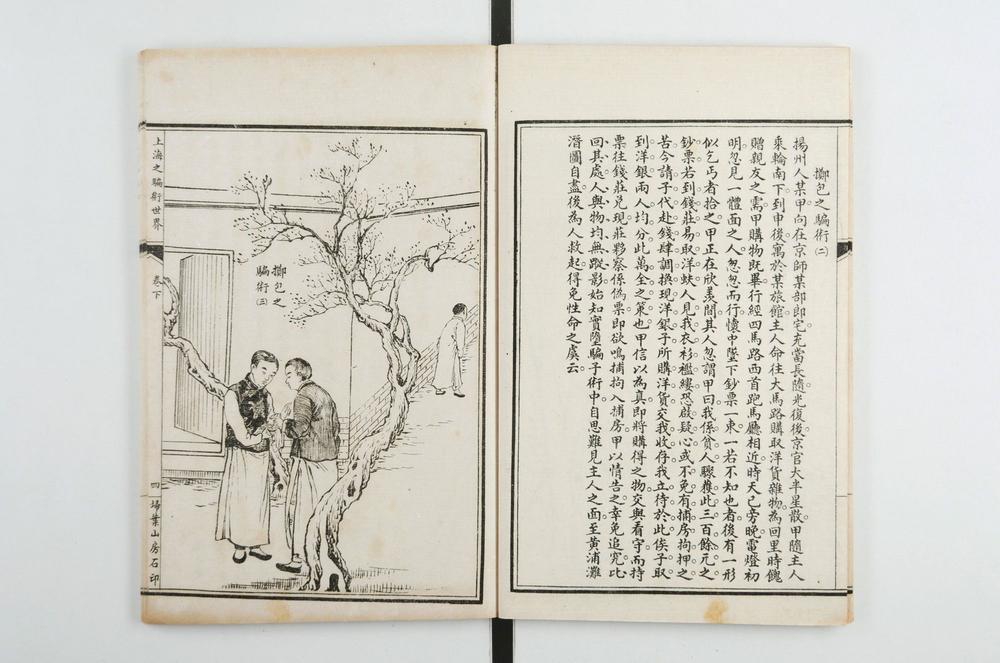 擲包之騙術㈡
揚州人某甲。向在京師某部郎宅。充當長隨。光復後。京官大半星散。甲隨主人
乘輪南下。到申後。寓於某旅館。主人命往大馬路購取洋貨雜物。為回里時餽
贈親友之需。甲購物既畢。行經四馬路西首跑馬廳相近。時天已旁晚。電燈初
明。忽見一體面之人。忽忽而行。懷中墜下鈔票一束。一若不知也者。後有一形
似乞丐者拾之。甲正在欣羨間。其人忽謂甲曰。我係貧人。驟獲此三百餘元之
鈔票。若到錢莊易取洋蚨。人見我衣衫襤褸。恐啟疑心。或不免有捕房拘押之
苦。今請子代赴錢肆調換現洋銀。子所購洋貨。交我收存。我立待於此。俟子取
到洋銀。兩人均分。此萬全之策也。甲信以為真。即將購得之物。交與看守。而持
票往錢莊兌現。莊夥察係偽票。即欲鳴捕拘入捕房。甲以情告之。幸免追究。比
回其處。人與物均無蹤影。始知實墮騙子術中。自思難見主人之面。至黃浦灘
潛圖自盡。後為人救起。得免性命之虞云。
上海之騙術世界
卷下
四
掃葉山房石印
擲包之
騙術㈢